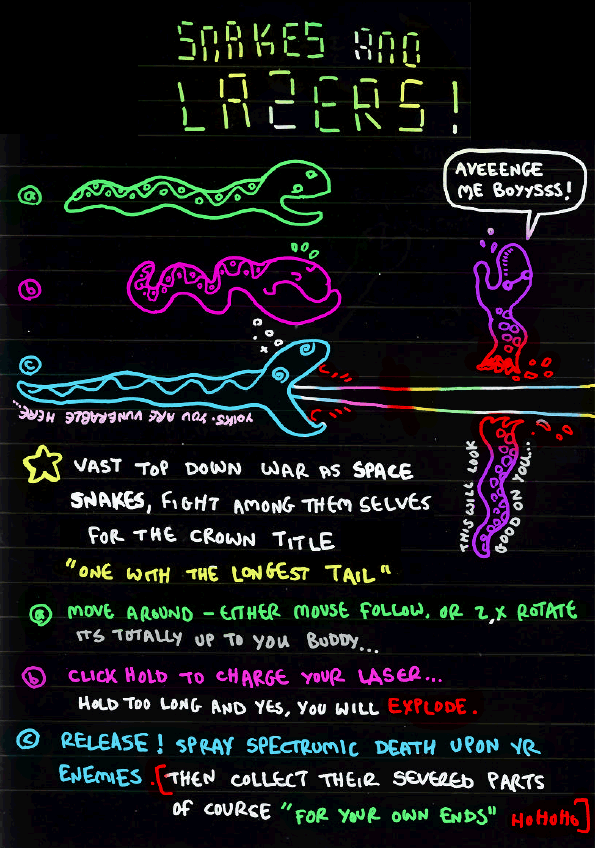 SNAKES AND
LAZERS!
AVEEENGE
ME BOYYSSS!
a
b
c
YOIKS. YOU ARE VUNERABLE HERE...
THIS WILL LOOK
GOOD ON YOU...
VAST TOP DOWN WAR AS SPACE
SNAKES, FIGHT AMONG THEM SELVES
FOR THE CROWN TITLE
"ONE WITH THE LONGEST TAIL"
a MOVE AROUND - EITHER MOUSE FOLLOW, OR Z,X ROTATE
ITS TOTALLY UP TO YOU BUDDY...
b CLICK HOLD TO CHARGE YOUR LASER...
HOLD TOO LONG AND YES, YOU WILL EXPLODE.
c RELEASE! SPRAY SPECTRUMIC DEATH UPON YR
ENEMIES. [THEN COLLECT THEIR SEVERED PARTS
OF COURSE "FOR YOUR OWN ENDS" HOHOHO]